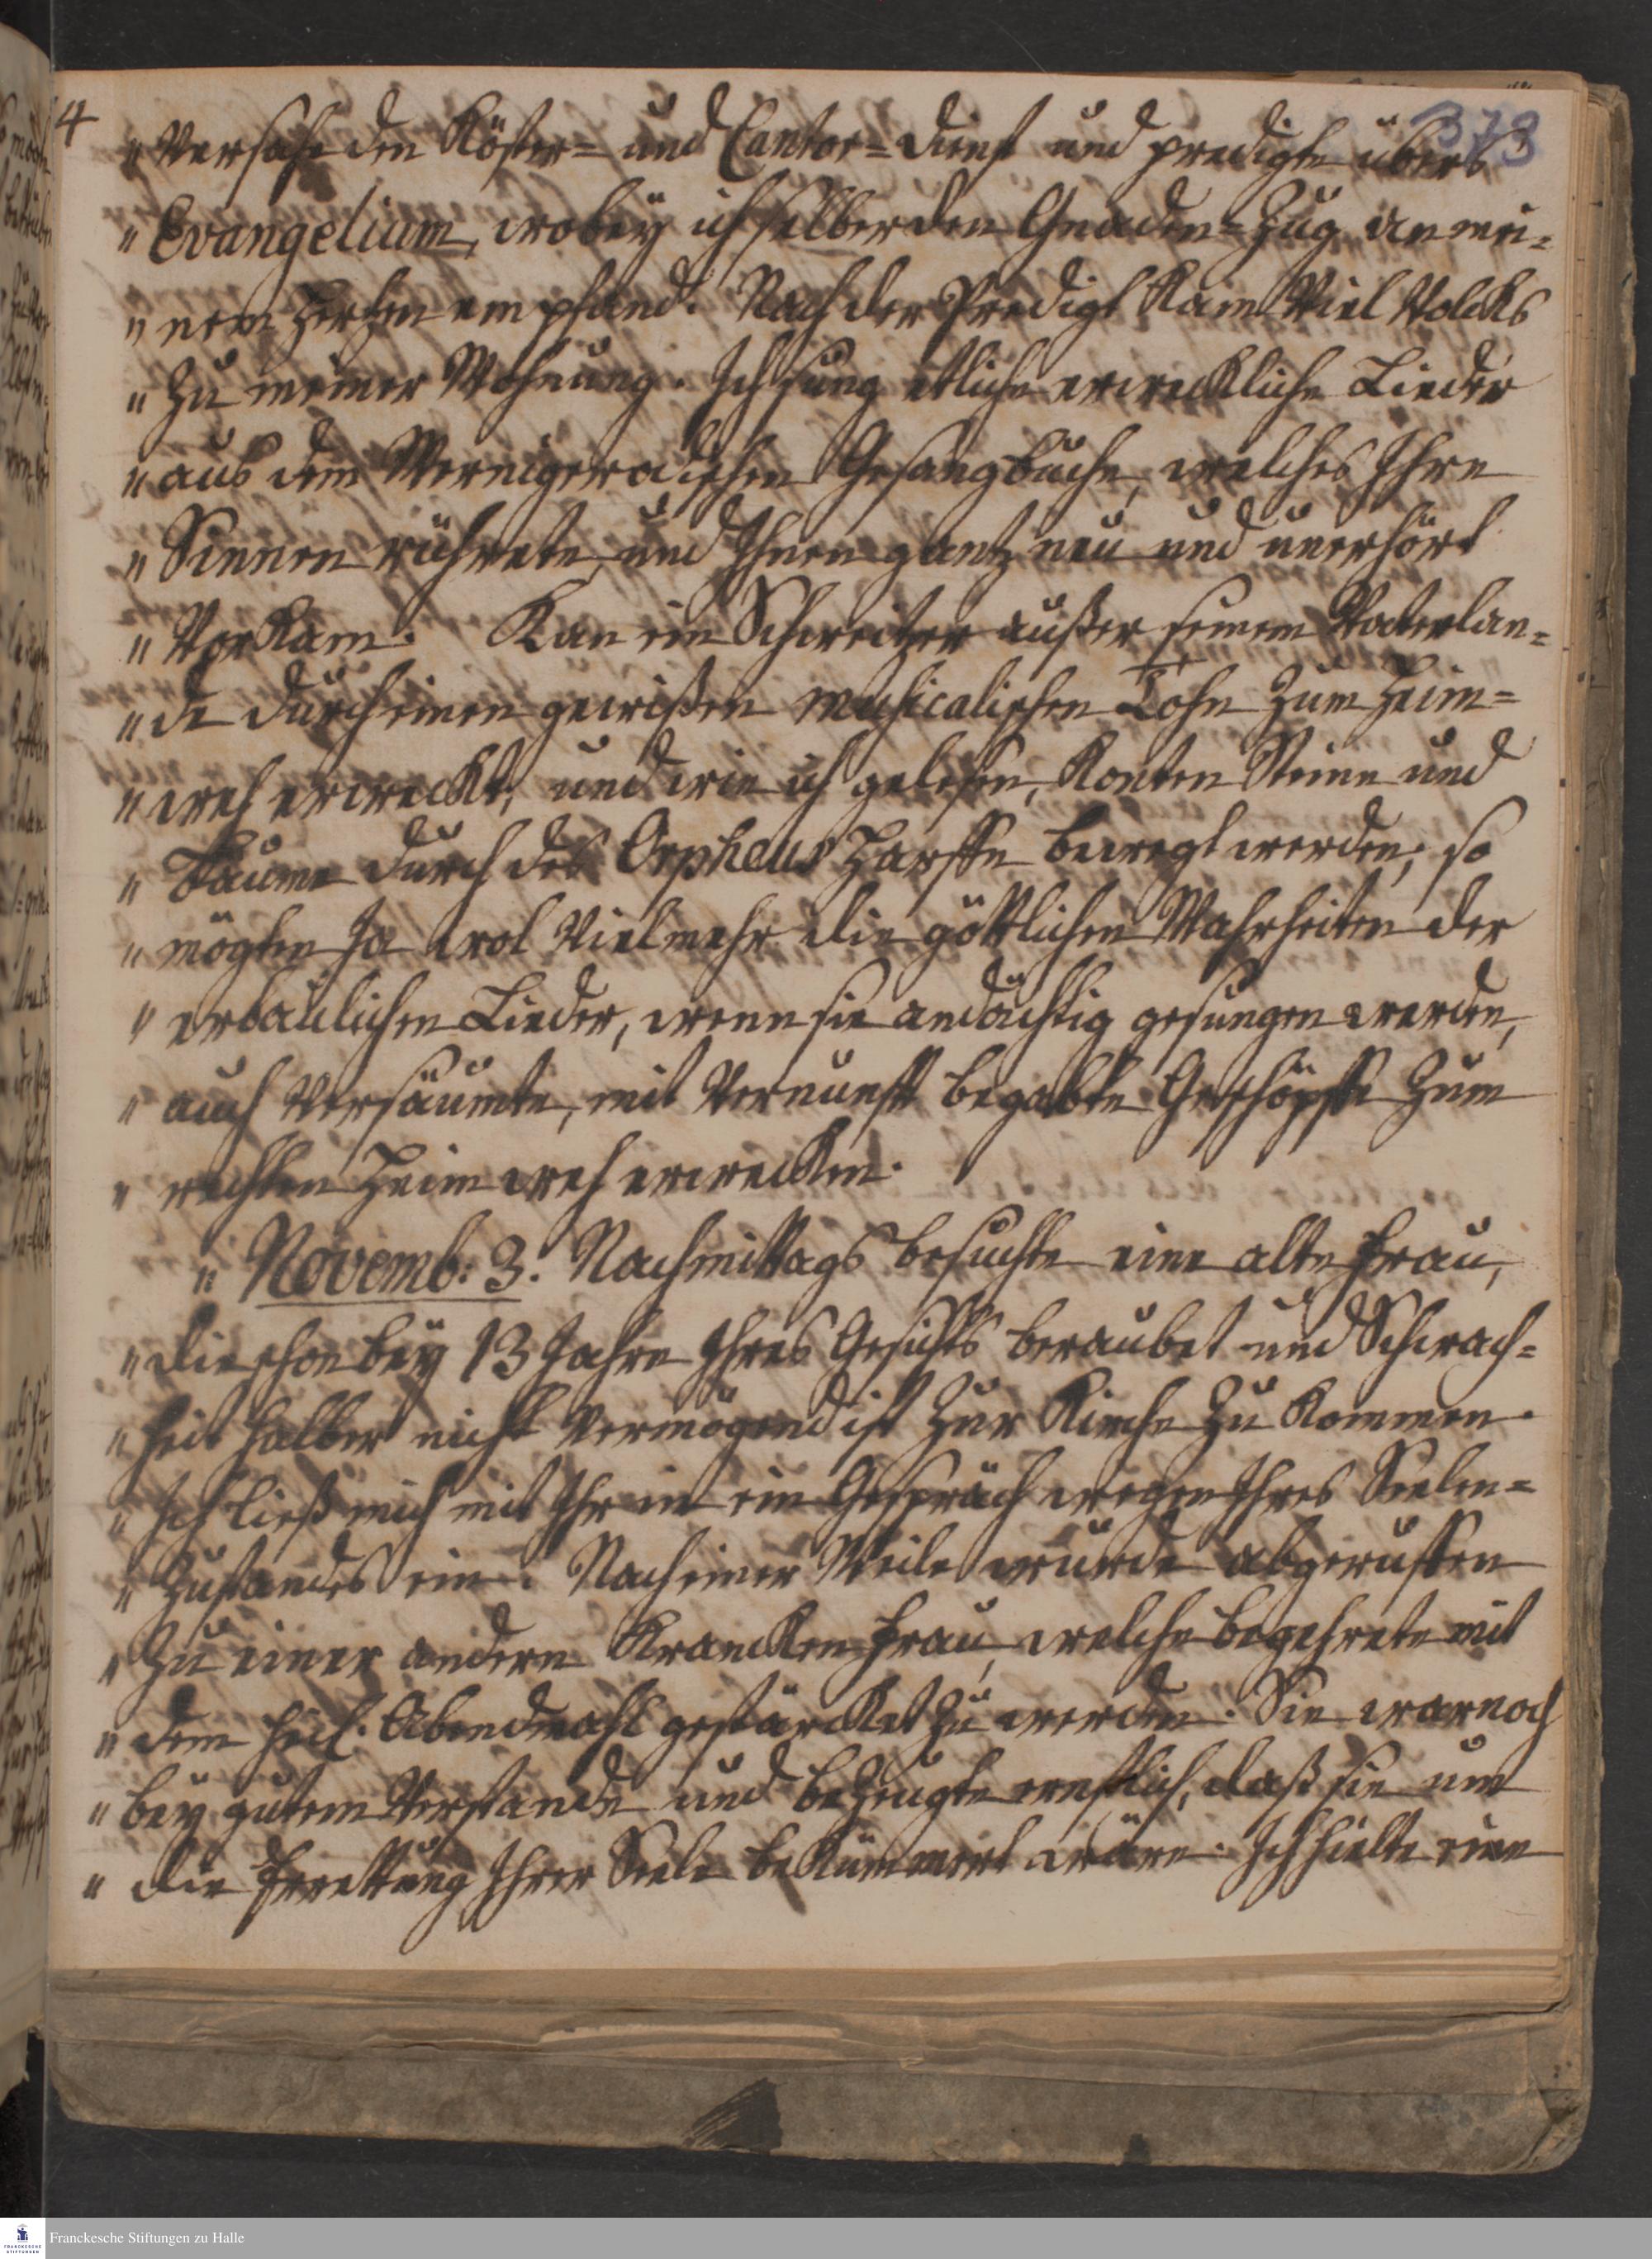 4
373
" Versahe den Köster= und Cantor=Dienst und predigte übers
" Evangelium, wobey ich selber den Gnaden=Zug an mei=
" nem Hertzen empfand. Nach der Predigt kam viel Volcks
" zu meiner Wohnung. Ich sung etliche erweckliche Lieder
" aus dem Wernigerodischen Gesangbuche, welches Ihre
" Sinnen rührete, und Ihnen gantz neu und unerhört
" vorkam. Kan ein Schweitzer außer seinem Vaterlan=
" de durch einen gewißen musicalischen Tohn zum Heim=
" weh erweckt, und wie ich gelesen, konten Steine und
" Bäume durch des Orpheus Harffe bewegt werden; so
" mögten ja wol vielmehr die göttlichen Wahrheiten der
" erbaulichen Lieder, wenn sie andächtig gesungen werden,
" auch versäumte, mit Vernunfft begabte Geschöpffe zum
" rechten Heimweh erwecken.
" Novemb: 3. Nachmittags besuchte eine alte Frau,
" die schon bey 13 Jahre Ihres Gesichts beraubet und Schwach=
" heit halber nicht vermögend ist zur Kirche zu kommen.
" Ich ließ mich mit Ihr in ein Gespräch wegen Ihres Seelen=
" Zustandes ein. Nach einer Weile wurde abgeruffen
" zu einer andern krancken Frau, welche begehrete mit
" dem heil. Abendmahl gestärcket zu werden. Sie war noch
" bey gutem Verstande und bezeugte ernstlich, daß sie um
" die Errettung Ihrer Seele bekümmert wäre. Ich hielte eine
Franckesche Stiftungen zu Halle
FRANCKESCHE
STIFTUNGEN